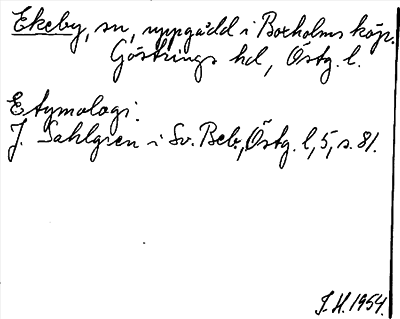 Ekeby, sn, uppgådd i Boxholms köp.
Göstrings hd, Östg. l.
Etymologi:
J. Sahlgren i Sv. Beb., Östg. l, 5, s. 81.
J. H. 1954.